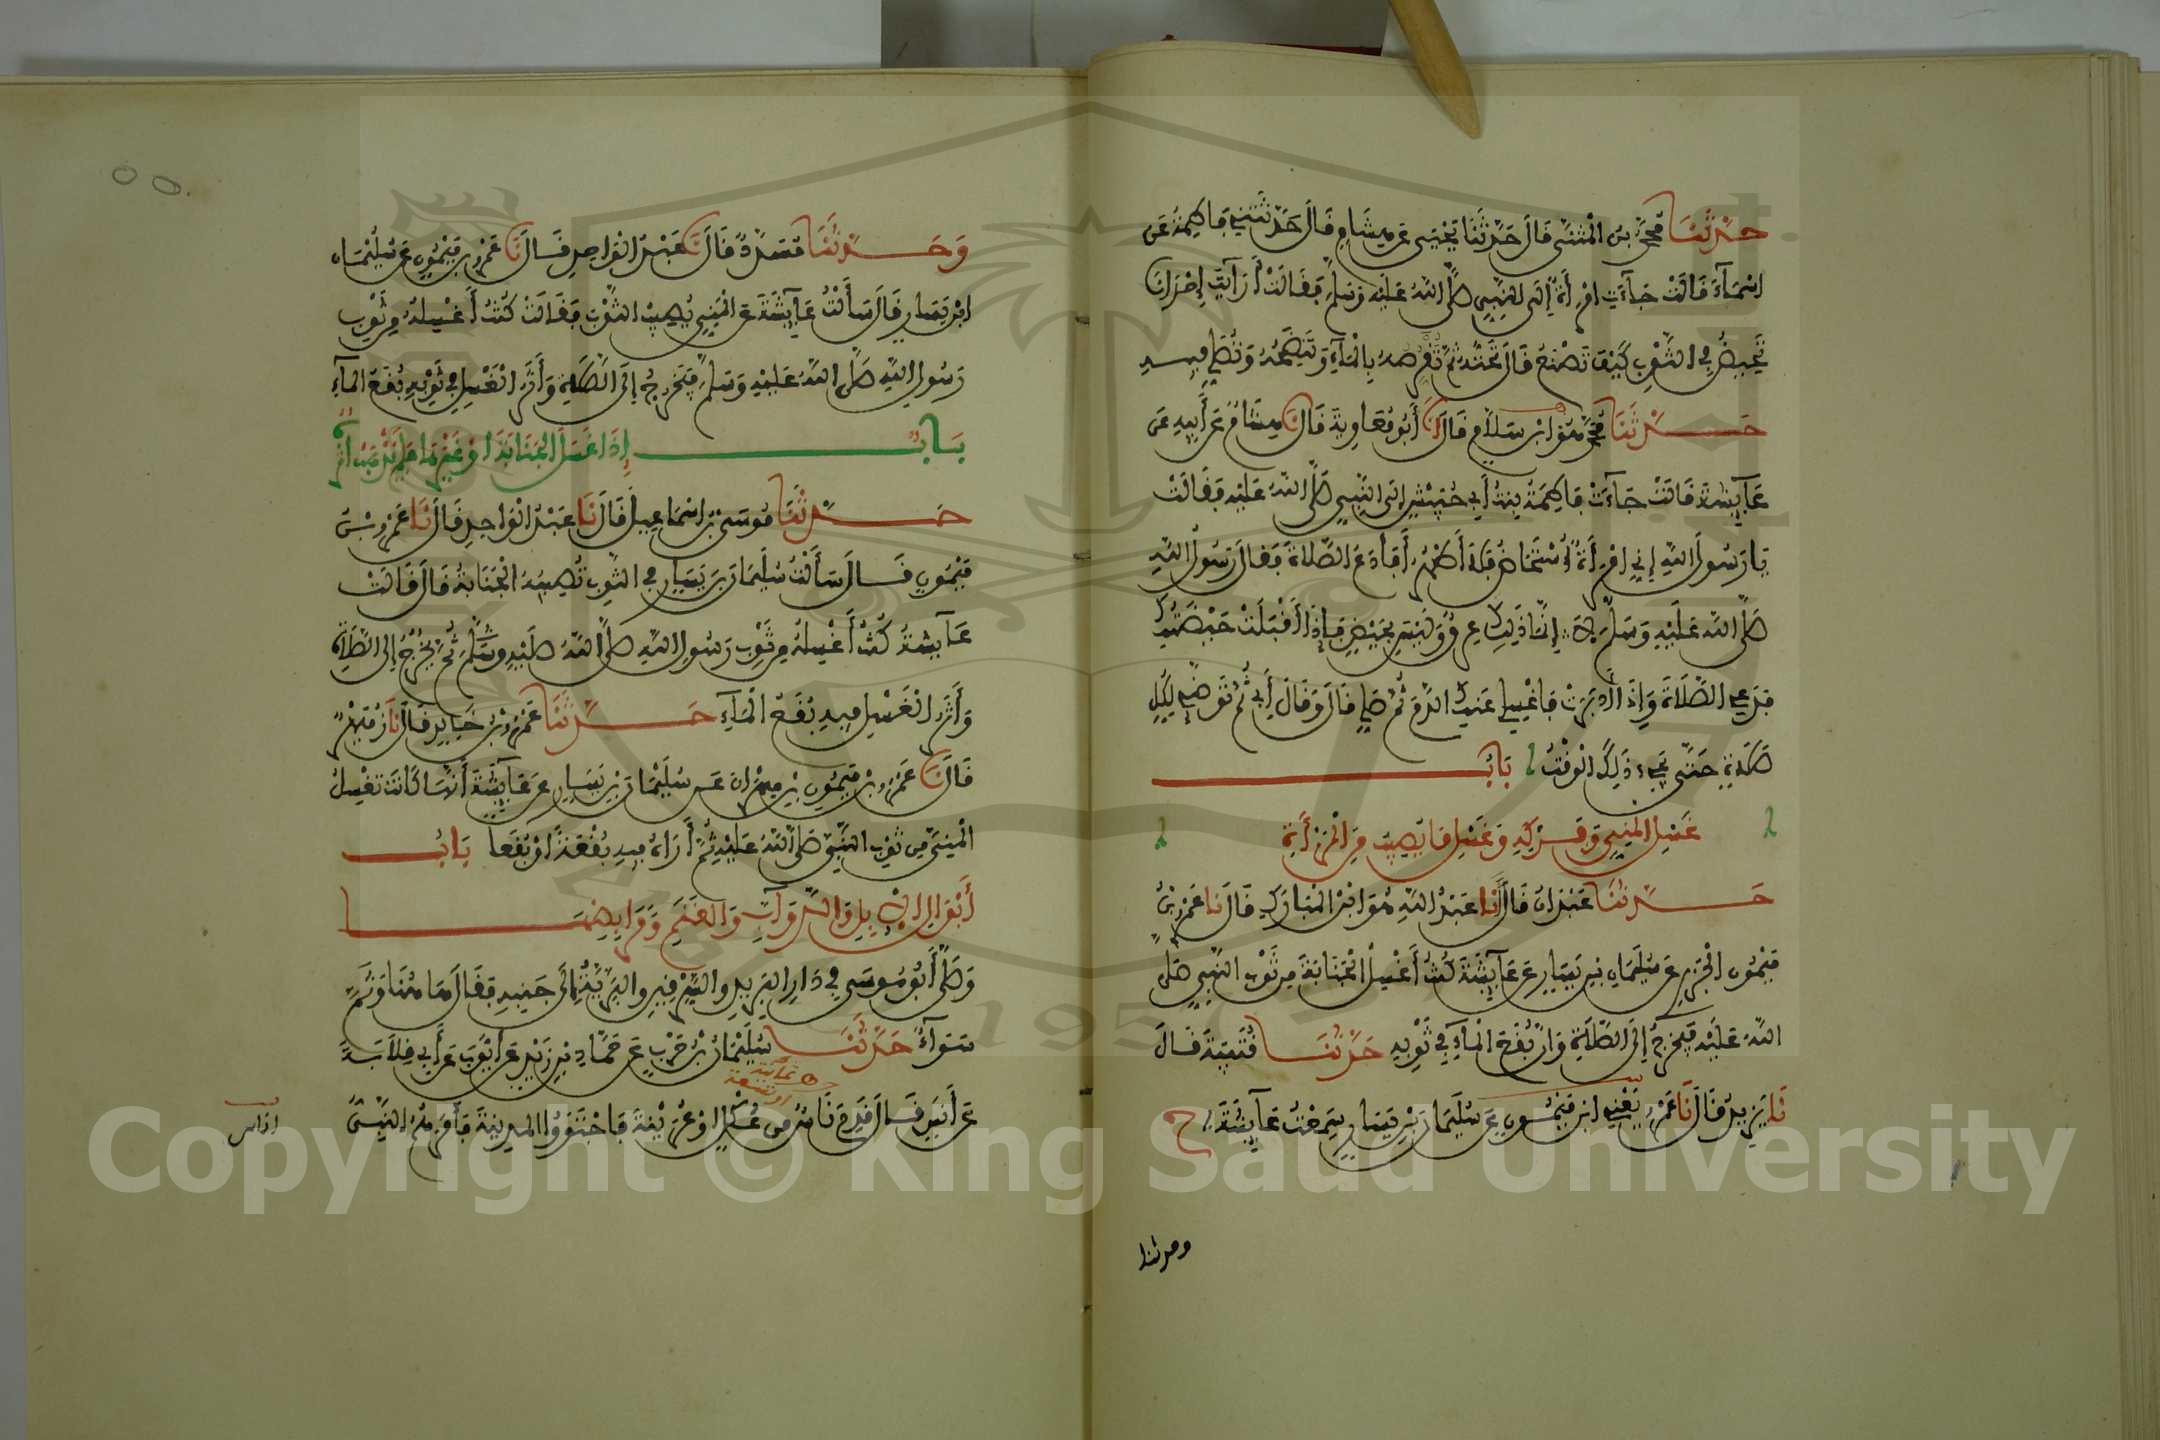 حَدَّثَنَا مُحَمَّدُ بْنُ الْمُثَنَّى قَالَ حَدَّثَنَا يَحْيَى عَنْ هِشَامٍ قَالَ حَدَّثَتْنِي فَاطِمَةُ عَنْ
اسْمَآءَ قَالَتْ جَآءَتِ امْرَأَةٌ إِلَى النَّبِيِّ صَلَّى اللَّهُ عَلَيْهِ وَسَلَّمَ فَقَالَتْ أَرَأَيْتَ إِحْدَانَا
تَحِيضُ فِي الثَّوْبِ كَيْفَ تَصْنَعُ قَالَ تَحُتُّهُ ثُمَّ تَقْرُصُهُ بِالْمَآءِ وَتَنْضَحُهُ وَتُصَلِّي فِيهِ
حَدَّثَنَا مُحَمَّدٌ هُوَ ابْنُ سَلَامٍ قَالَ نَا أَبُو مُعَاوِيَةَ قَالَ نَا هِشَامٌ عَنْ أَبِيهِ عَنْ
عَآئِشَةَ قَالَتْ جَآءَتْ فَاطِمَةُ بِنْتُ أَبِي حُبَيْشٍ إِلَى النَّبِيِّ صَلَّى اللَّهُ عَلَيْهِ فَقَالَتْ
يَا رَسُولَ اللَّهِ إِنِّي امْرَأَةٌ أُسْتَحَاضُ فَلَا أَطْهُرُ أَفَأَدَعُ الصَّلَاةَ فَقَالَ رَسُولُ اللَّهِ
صَلَّى اللَّهُ عَلَيْهِ وَسَلَّمَ لَا إِنَّمَا ذَلِكِ عِرْقٌ وَلَيْسَ بِحَيْضٍ فَإِذَا أَقْبَلَتْ حَيْضَتُكِ
فَدَعِي الصَّلَاةَ وَإِذَا أَدْبَرَتْ فَاغْسِلِي عَنْكِ الدَّمَ ثُمَّ صَلِّي قَالَ وَقَالَ أَبِي ثُمَّ تَوَضَّئِي لِكُلِّ
صَلَاةٍ حَتَّى يَجِيءَ ذَلِكَ الْوَقْتُ بَابُ
غَسْلِ الْمَنِيِّ وَفَرْكِهِ وَغَسْلِ مَا يُصِيبُ مِنَ الْمَرْأَةِ
حَدَّثَنَا عَبْدَانُ قَالَ نَا عَبْدُ اللَّهِ هُوَ ابْنُ الْمُبَارَكِ قَالَ نَا عَمْرُو بْنُ
مَيْمُونٍ الْجَزَرِيُّ عَنْ سُلَيْمَانَ بْنِ يَسَارٍ عَنْ عَآئِشَةَ كُنْتُ أَغْسِلُ الْجَنَابَةَ مِنْ ثَوْبِ النَّبِيِّ صَلَّى
اللَّهُ عَلَيْهِ فَيَخْرُجُ إِلَى الصَّلَاةِ وَإِنَّ بُقَعَ الْمَآءِ فِي ثَوْبِهِ حَدَّثَنَا قُتَيْبَةُ قَالَ
نَا يَزِيدُ قَالَ نَا عَمْرٌو يَعْنِي ابْنَ مَيْمُونٍ عَنْ سُلَيْمَانَ بْنِ يَسَارٍ سَمِعْتُ عَآئِشَةَ ح
وحدثنا
وَحَدَّثَنَا مُسَدَّدٌ قَالَ نَا عَبْدُ الْوَاحِدِ قَالَ نَا عَمْرُو بْنُ مَيْمُونٍ عَنْ سُلَيْمَانَ
ابْنِ يَسَارٍ قَالَ سَأَلْتُ عَآئِشَةَ عَنِ الْمَنِيِّ يُصِيبُ الثَّوْبَ فَقَالَتْ كُنْتُ أَغْسِلُهُ مِنْ ثَوْبِ
رَسُولِ اللَّهِ صَلَّى اللَّهُ عَلَيْهِ وَسَلَّمَ فَيَخْرُجُ إِلَى الصَّلَاةِ وَأَثَرُ الْغَسْلِ فِي ثَوْبِهِ بُقَعُ الْمَآءِ
بَابُ إِذَا غَسَلَ الْجَنَابَةَ أَوْ غَيْرَهَا فَلَمْ يَذْهَبْ أَثَرُهُ
حَدَّثَنَا مُوسَى بْنُ اسْمَاعِيلَ قَالَ نَا عَبْدُ الْوَاحِدِ قَالَ نَا عَمْرُو بْنُ
مَيْمُونٍ قَالَ سَأَلْتُ سُلَيْمَانَ بْنَ يَسَارٍ فِي الثَّوْبِ تُصِيبُهُ الْجَنَابَةُ قَالَ قَالَتْ
عَآئِشَةُ كُنْتُ أَغْسِلُهُ مِنْ ثَوْبِ رَسُولِ اللَّهِ صَلَّى اللَّهُ عَلَيْهِ وَسَلَّمَ ثُمَّ يَخْرُجُ إِلَى الصَّلَاةِ
وَأَثَرُ الْغَسْلِ فِيهِ بُقَعُ الْمَآءِ حَدَّثَنَا عَمْرُو بْنُ خَالِدٍ قَالَ نَا زُهَيْرٌ
قَالَ نَا عَمْرُو بْنُ مَيْمُونِ بْنِ مِهْرَانَ عَنْ سُلَيْمَانَ بْنِ يَسَارٍ عَنْ عَآئِشَةَ أَنَّهَا كَانَتْ تَغْسِلُ
الْمَنِيَّ مِنْ ثَوْبِ النَّبِيِّ صَلَّى اللَّهُ عَلَيْهِ ثُمَّ أَرَاهُ فِيهِ بُقْعَةً أَوْ بُقَعًا بَابُ
أَبْوَالِ الْإِبِلِ وَالدَّوَآبِّ وَالْغَنَمِ وَمَرَابِضِهَا
وَصَلَّى أَبُو مُوسَى فِي دَارِ الْبَرِيدِ وَالسِّرْقِينِ وَالْبَرِّيَّةُ إِلَى جَنْبِهِ فَقَالَ هَاهُنَا وَثَمَّ
سَوَآءٌ حَدَّثَنَا سُلَيْمَانُ بْنُ حَرْبٍ عَنْ حَمَّادِ بْنِ زَيْدٍ عَنْ أَيُّوبَ عَنْ أَبِي قِلَابَةَ
ثمانية
عَنْ أَنَسٍ قَالَ قَدِمَ نَاسٌ مِنْ عُكْلٍ أَوْ عُرَيْنَةَ فَاجْتَوَوُا الْمَدِينَةَ فَأَمَرَهُمُ النَّبِيُّ
اناس
Copyright © King Saud University
1957